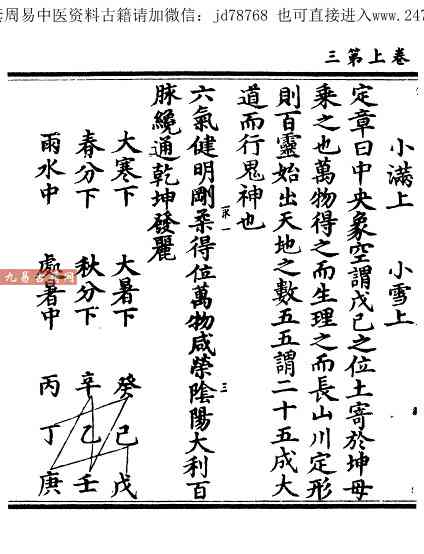 周易中医资料古籍请加微信：jd78768 也可直接进入www.247
卷上第三
小滿上 小雪上
定章曰中央象空謂戊己之位土寄於坤母
乘之也萬物得之而生理之而長山川定形
則百靈始出天地之數五五謂二十五成大
道而行鬼神也
六氣健明剛柔得位萬物咸榮陰陽大利百
脉纔通乾坤發麗
大寒下 大暑下 癸己戊
春分下 秋分下 辛乙壬
雨水中 處暑中 丙丁庚
九易古